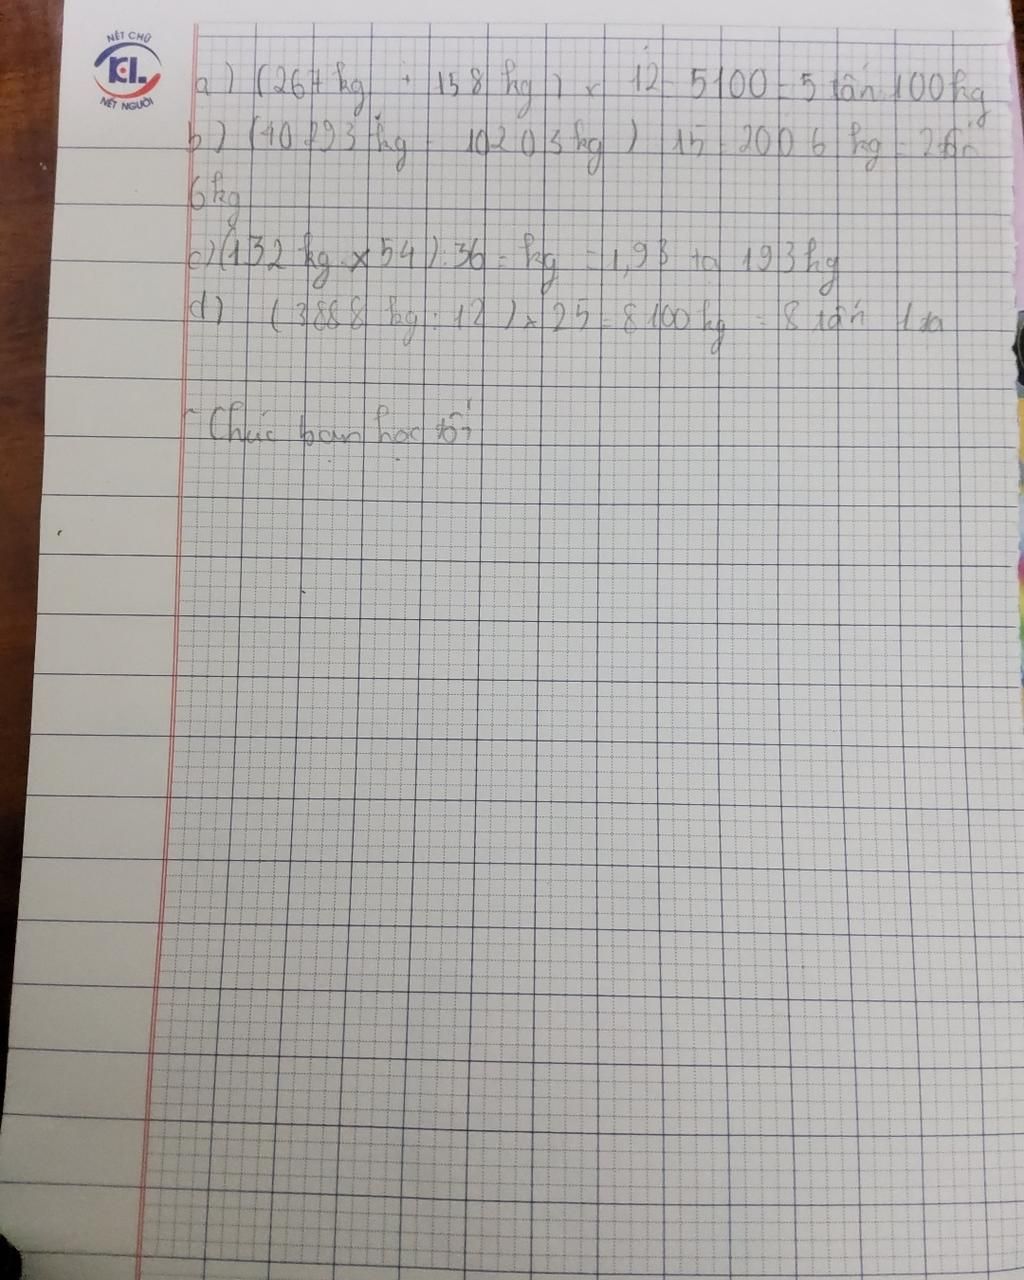 NÉT CHỮ
KL
NẾT NGƯỜI
a) (267 kg + 158 kg) x 12 = 5100 = 5 tấn 100kg
b) (40293 kg - 10203 kg) 15 = 2006 kg = 2 tấn
6kg
c) (132 kg x 54) : 36 = kg = 1,93 tạ 193kg
d) (3888 kg : 12) x 25 = 8100kg = 8 tấn 1 tạ
- Chúc bạn học tốt